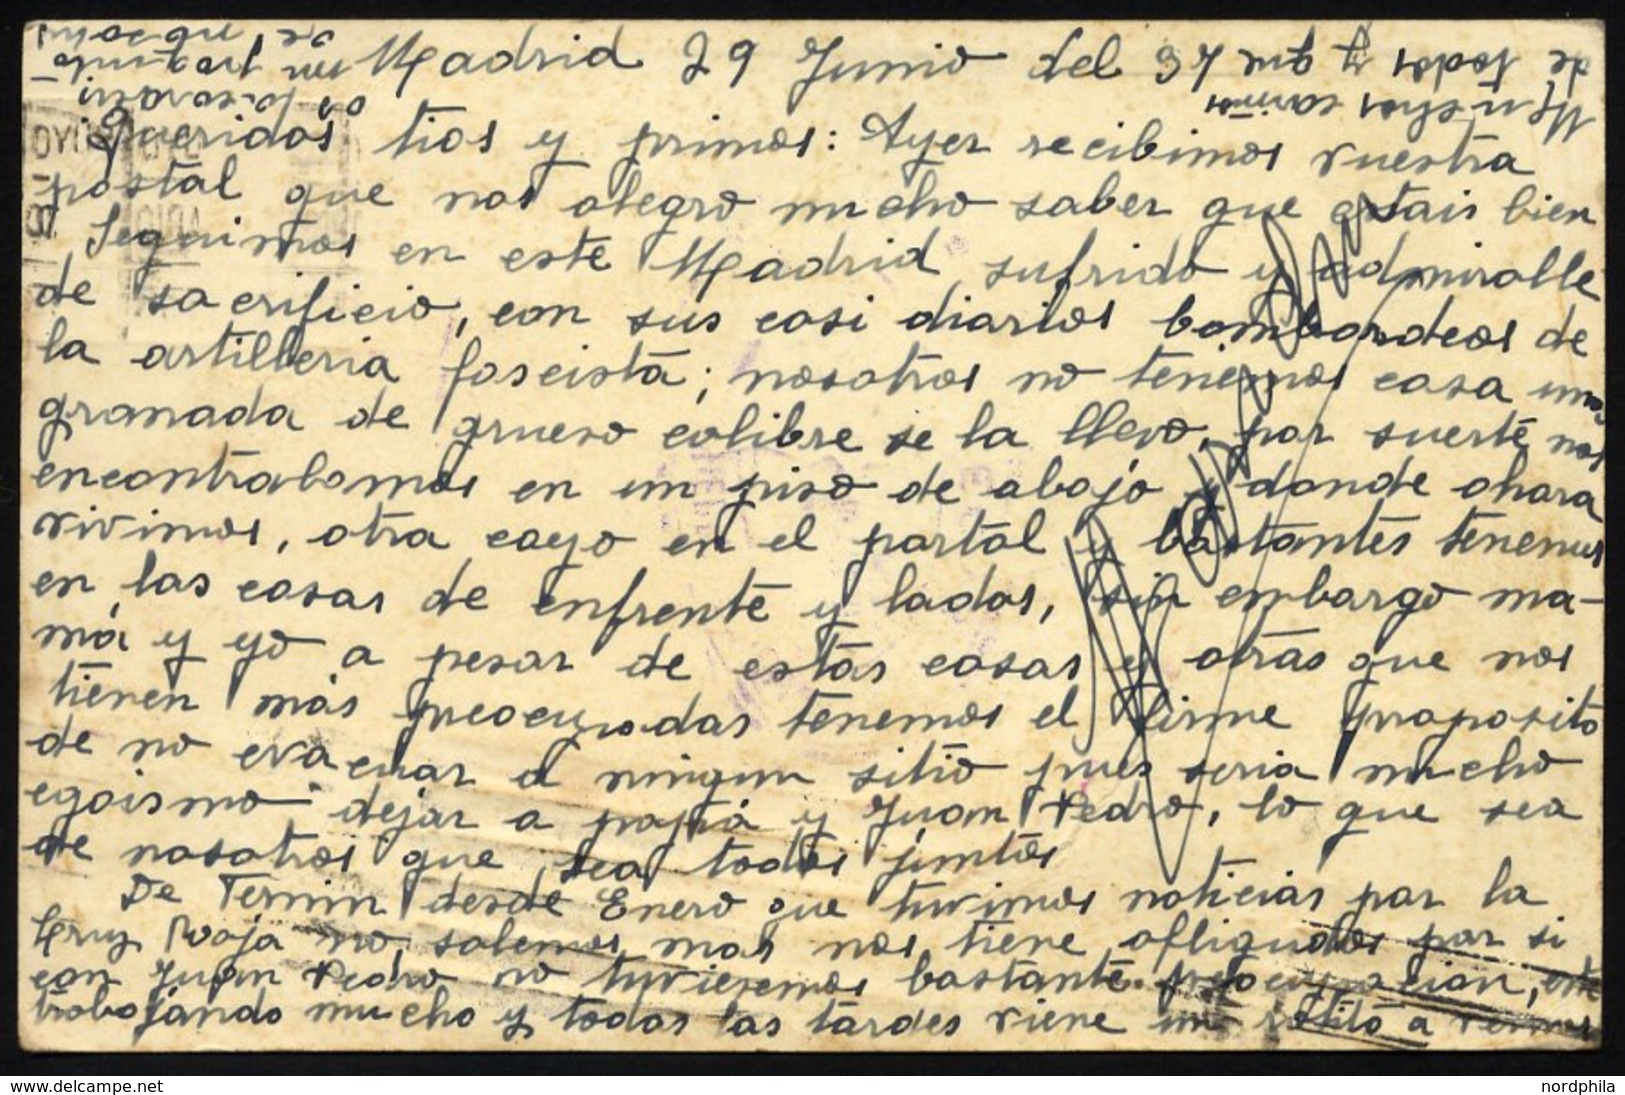 Madrid 29 Junio del 37
Queridos tios y primos: Ayer recibimos vuestra
postal que nos alegro mucho saber que estais bien
Seguimos en este Madrid sufrido y admiralle
de sacrificio, con sus casi diarios bombardeos de
la artilleria fascista; nosotros no tenemos casa una
granada de grueso calibre se la llevo, por suerte nos
encontrabamos en un piso de abajo y donde ahora
vivimos, otra cayo en el portal y bastantes tenemos
en las casas de enfrente y lados, sin embargo ma-
má y yo a pesar de estas cosas y otras que nos
tienen más preocupadas tenemos el firme proposito
de no evacuar a ningun sitio pues seria mucho
egoismo dejar a papá y Juan Pedro, lo que sea
de nosotros que sea todos juntos
De Fermin desde Enero que tuvimos noticias por la
Cruz Roja no sabemos mas nos tiene afliguidos por si
con Juan Pedro no tuvieremos bastante preocupacion, este
trabajando mucho y todas las tardes viene un ratito a vernos
de todos y que
Muchos cariños